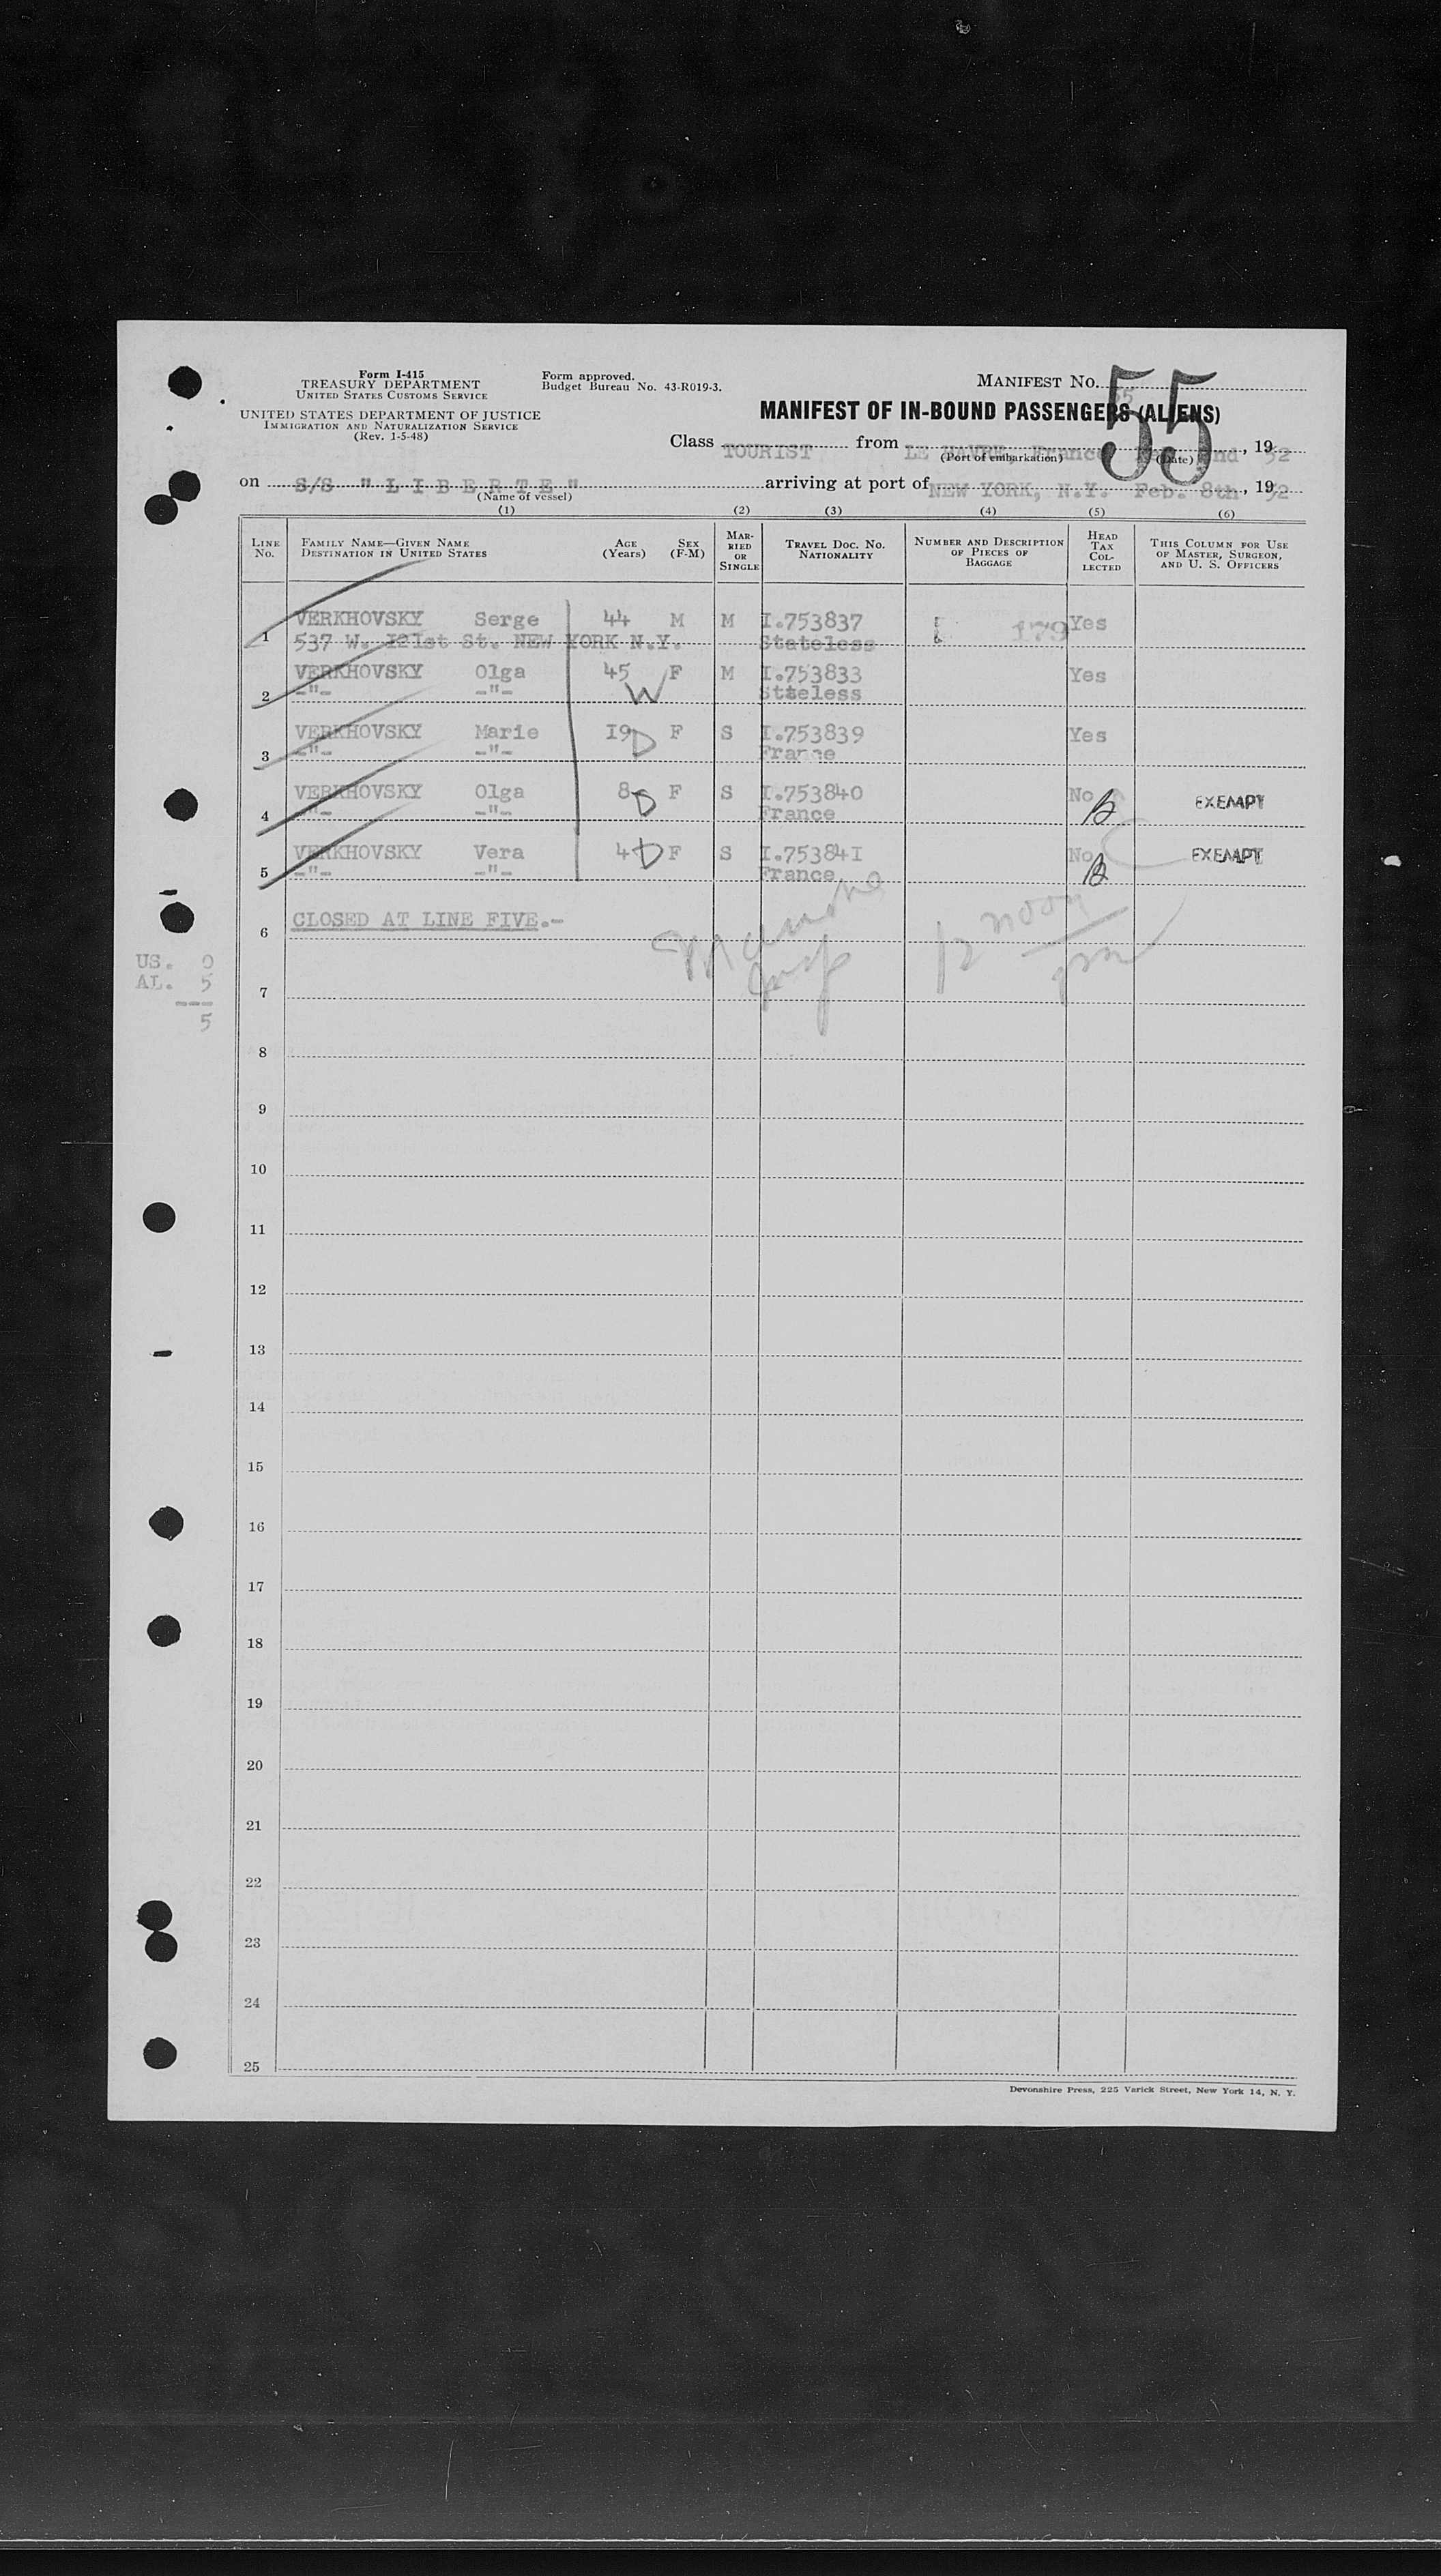 Form I-415
TREASURY DEPARTMENT
UNITED STATES CUSTOMS SERVICE
UNITED STATES DEPARTMENT OF JUSTICE
IMMIGRATION AND NATURALIZATION SERVICE
(Rev. 1-5-48)
Form approved.
Budget Bureau No. 43-R019-3.
MANIFEST NO. 55
MANIFEST OF IN-BOUND PASSENGERS (ALIENS)
Class TOURIST from LE HAVRE, France 2nd, 1952
(Port of embarkation) (Date)
on S/S "LIBERTE" arriving at port of NEW YORK, N.Y. Feb. 8th, 1952
(Name of vessel)
(1) (2) (3) (4) (5) (6)
LINE NO. FAMILY NAME—GIVEN NAME DESTINATION IN UNITED STATES AGE (Years) SEX (F-M) MARRIED OR SINGLE TRAVEL DOC. NO. NATIONALITY NUMBER AND DESCRIPTION OF PIECES OF BAGGAGE HEAD TAX COLLECTED THIS COLUMN FOR USE OF MASTER, SURGEON, AND U. S. OFFICERS
VERKHOVSKY Serge 44 M M I.753837 179 Yes
1 537 W. 121st St. NEW YORK N.Y. Stateless
VERKHOVSKY Olga 45 F M I.753833 Yes
2 -"- -"- W Stateless
VERKHOVSKY Marie 19 D F S I.753839 Yes
3 -"- -"- France
VERKHOVSKY Olga 8 D F S I.753840 No EXEMPT
4 -"- -"- France
VERKHOVSKY Vera 4 D F S I.753841 No EXEMPT
5 -"- -"- France
6 CLOSED AT LINE FIVE.-
12 noon
US. 0
AL. 5
---
5
7
8
9
10
11
12
13
14
15
16
17
18
19
20
21
22
23
24
25
Devonshire Press, 225 Varick Street, New York 14, N. Y.